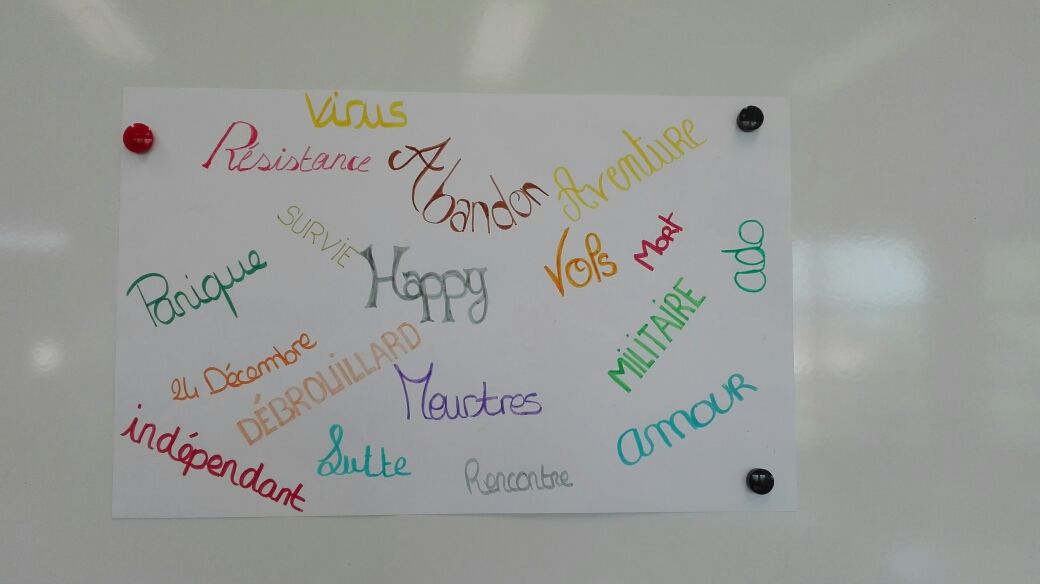 Virus
Résistance
Abandon
Aventure
SURVIE
Happy
Vols
Mort
ado
Panique
MILITAIRE
24 Décembre
DÉBROUILLARD
Meurtres
amour
indépendant
Lutte
Rencontre